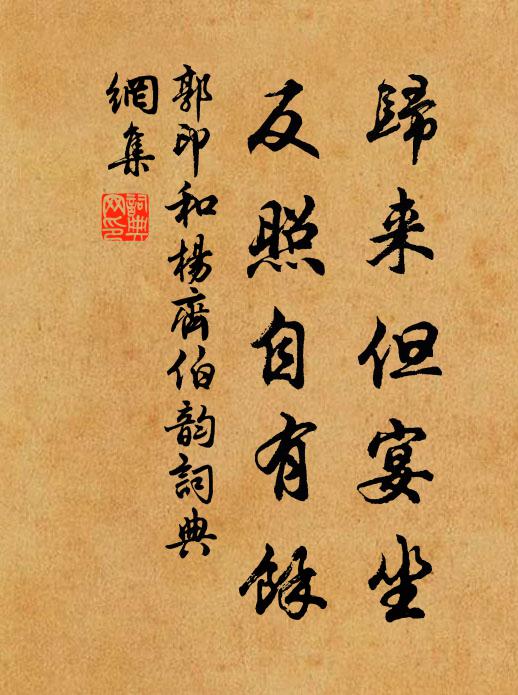 歸来但宴坐
反照自有餘
郭印和楊齊伯韵詞典
網集
詞典网印